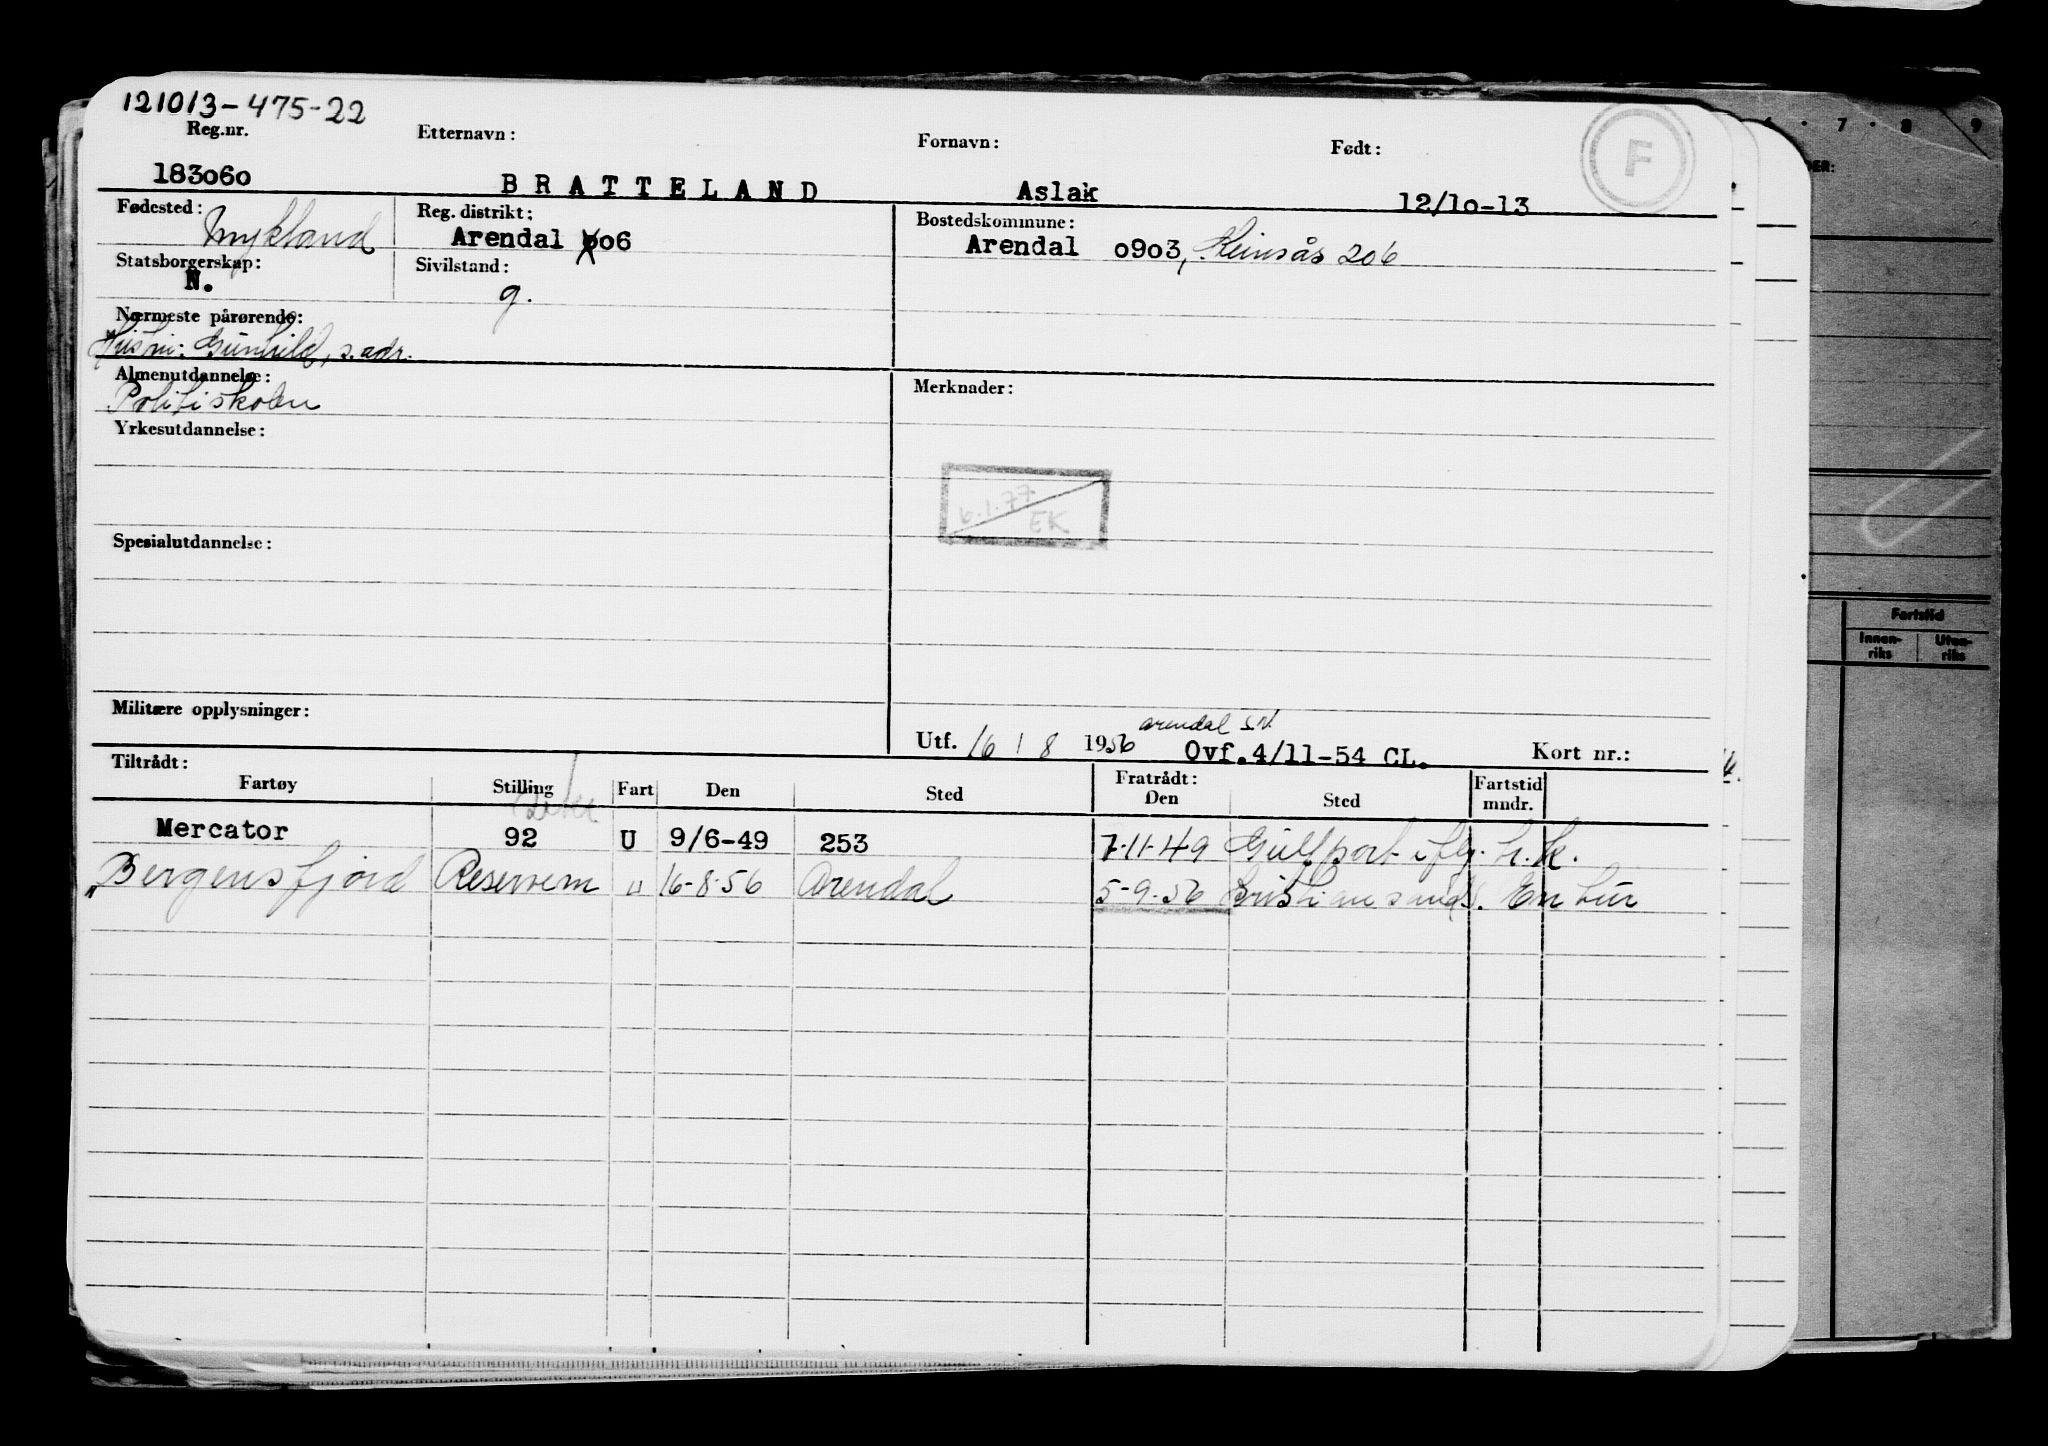 121013-475-22
Reg.nr. Etternavn: Fornavn: Født: F
183060 BRATTELAND Aslak 12/10-13
Fødested: Mykland Reg. distrikt: Bostedskommune:
Arendal 06 Arendal 0903, 206
Statsborgerskap: Sivilstand:
N. g.
Nærmeste pårørende:
Gunhild, s. adr.
Almenutdannelse: Merknader:
Politiskolen
Yrkesutdannelse:
6.1.77
EK
Spesialutdannelse:
Militære opplysninger:
Arendal
Utf. 16/8 1956 Ovf.4/11-54 CL. Kort nr.:
Tiltrådt: Fratrådt:
Fartøy Stilling Fart Den Sted Den Sted Fartstid mndr.
Mercator 92 U 9/6-49 253 7-11-49 Gulfport
Bergensfjord Reservem " 16-8-56 Arendal 5-9-56 Kristiansand S. En tur
6 · 7 · 8 9
DER:
Fartstid
Innen-
riks
Uten-
riks